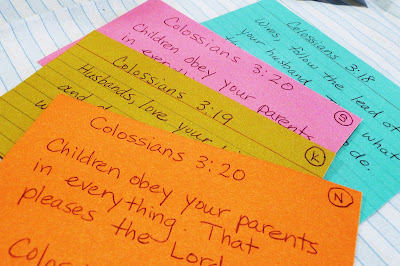 Colossians 3:18
Wives, follow the lead of
your husband. what
do.
Colossians 3:20
Children obey your parents
in
S
Colossians 3:19
Husbands, love your
and
K
Colossians 3:20
N
Children obey your parents
in everything. That
pleases the Lord